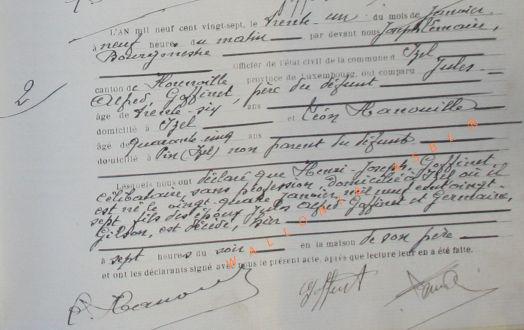 2
L'AN mil neuf cent vingt-sept, le trente-un du mois de janvier
à neuf heures du matin par devant nous Joseph Lemaire,
Bourgmestre
Officier de l'état civil de la commune d'Izel
canton de province de Luxembourg, ont comparu Jules-
Alfred, Goffinet, père du défunt
âge de trente-six ans
domicilié à Izel et Léon Hanouille
âgé de quarante-cinq ans
domicilié à Pin (Izel) non parent du défunt
Lesquels nous ont déclaré que Henri-Joseph Goffinet,
célibataire, sans profession, domicilié à Izel où il
est né le vingt-quatre janvier mil neuf cent vingt-
sept fils des époux Jules Alfred Goffinet et Germaine,
Gilson, est décédé, hier
à sept heures du soir en la maison de son père
et ont les déclarants signé avec nous le présent acte, après que lecture leur en a été faite.
L Hanouille Goffinet
WALLONIE